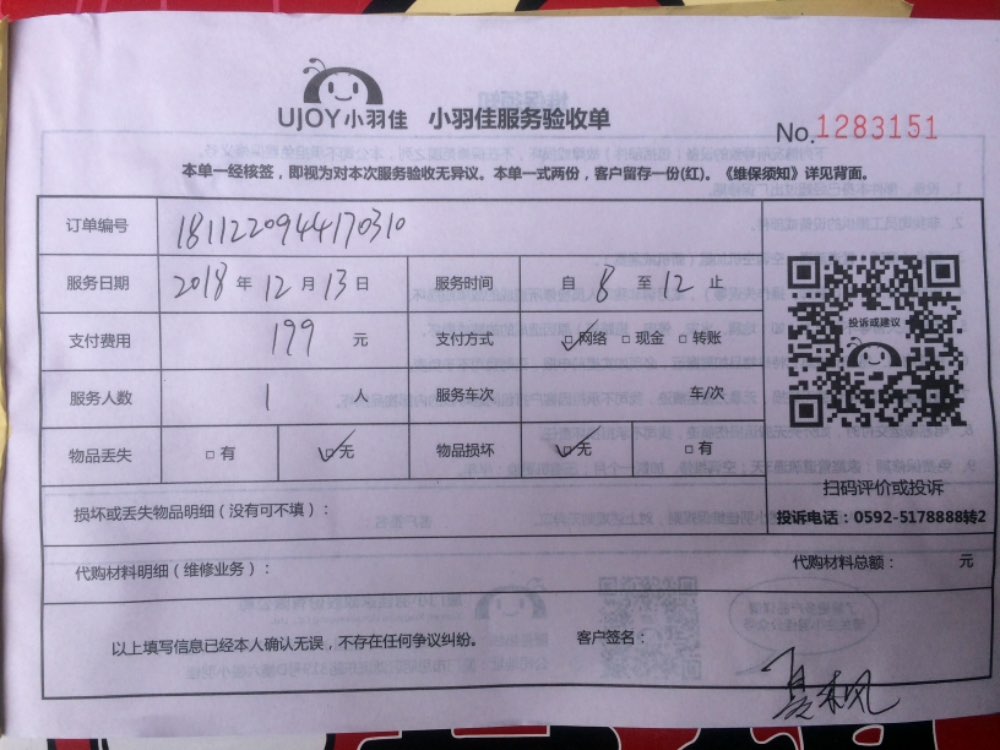 UJOY小羽佳 小羽佳服务验收单
No.1283151
本单一经核签，即视为对本次服务验收无异议。本单一式两份，客户留存一份(红)。《维保须知》详见背面。
订单编号 1811220944170310
服务日期 2018 年 12 月 13 日 服务时间 自 8 至 12 止
投诉或建议
支付费用 199 元 支付方式 □网络 □现金 □转账
服务人数 1 人 服务车次 车/次
物品丢失 □有 □无 物品损坏 □无 □有
扫码评价或投诉
损坏或丢失物品明细（没有可不填）：
投诉电话：0592-5178888转2
代购材料明细（维修业务）： 代购材料总额： 元
以上填写信息已经本人确认无误，不存在任何争议纠纷。 客户签名：